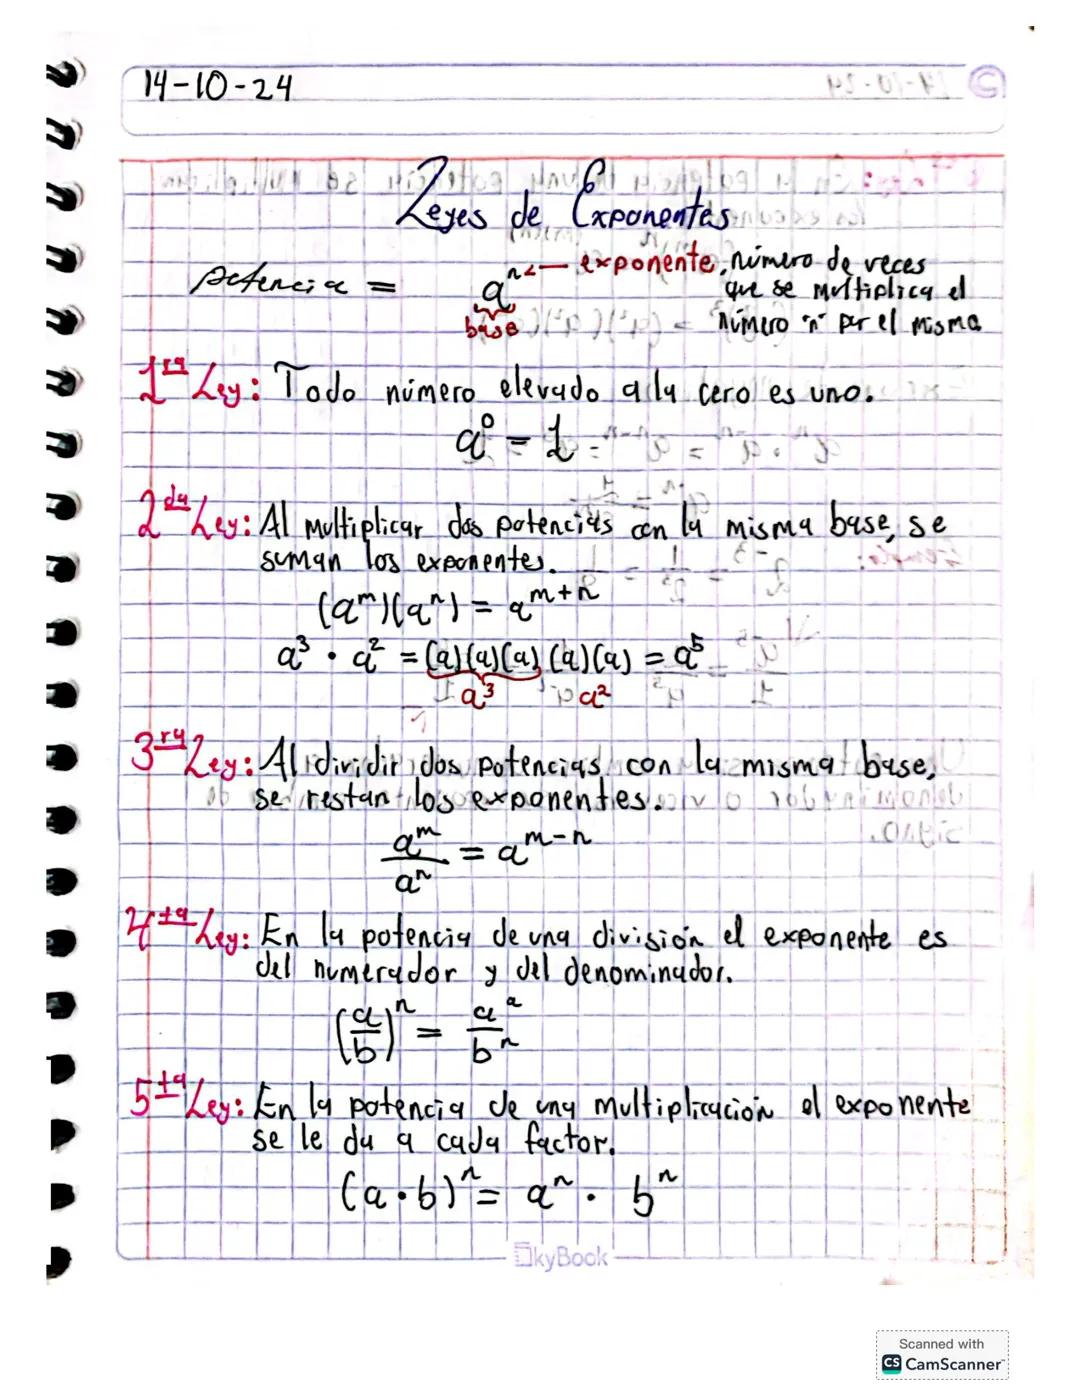 14-10-24
Leyes de Exponentes
potencia = aⁿ ← exponente, número de veces
que se multiplica el
base número "n" por el misma
1ra Ley: Todo número elevado a la cero es uno.
a⁰ = 1
2da Ley: Al multiplicar dos potencias con la misma base, se
suman los exponentes.
(aᵐ)(aⁿ) = aᵐ⁺ⁿ
a³ · a² = (a)(a)(a)(a)(a) = a⁵
a³ a²
3ra Ley: Al dividir dos potencias con la misma base,
se restan los exponentes.
aᵐ/aⁿ = aᵐ⁻ⁿ
4ta Ley: En la potencia de una división el exponente es
del numerador y del denominador.
(a/b)ⁿ = aᵃ/bⁿ
5ta Ley: En la potencia de una multiplicación el exponente
se le da a cada factor.
(a·b)ⁿ = aⁿ · bⁿ
SkyBook
Scanned with
CS CamScanner